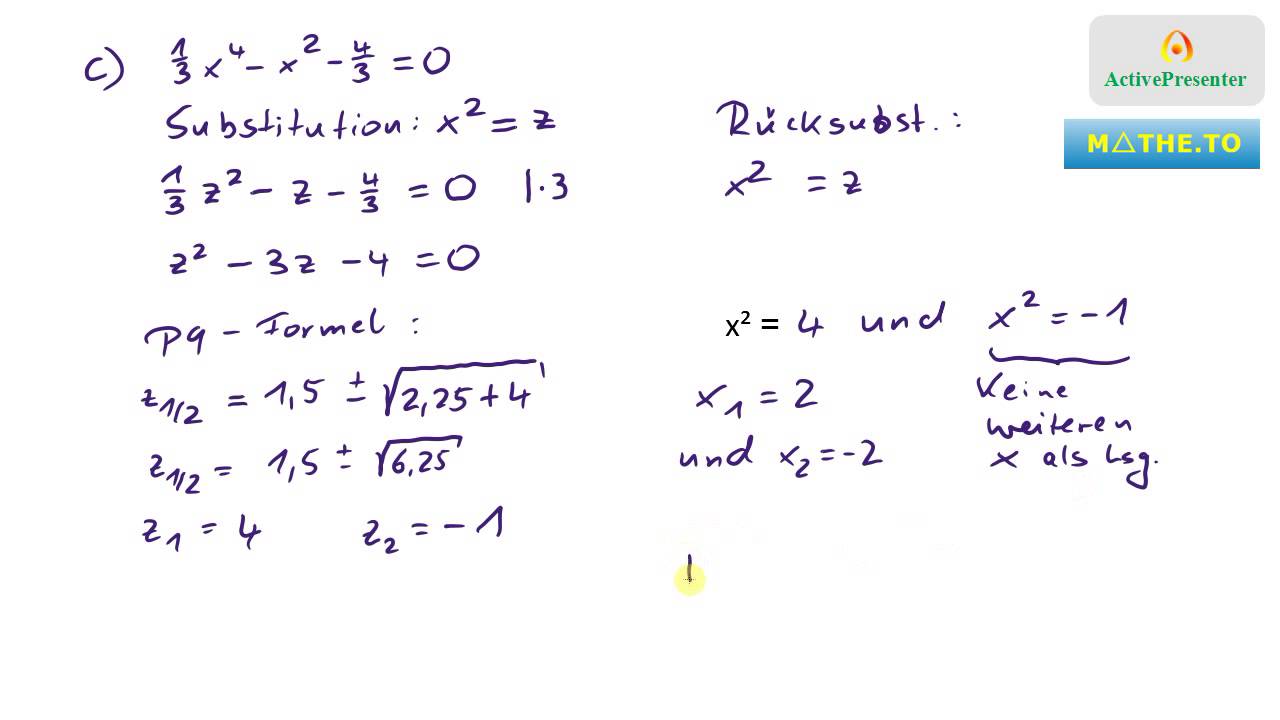 c) 1/3 x⁴ − x² − 4/3 = 0
Substitution: x² = z
1/3 z² − z − 4/3 = 0 | · 3
z² − 3z − 4 = 0
Pq − Formel :
z₁/₂ = 1,5 ± √(2,25 + 4)
z₁/₂ = 1,5 ± √(6,25)
z₁ = 4 z₂ = −1
Rücksubst. :
x² = z
x² = 4 und x² = −1
x₁ = 2
und x₂ = −2
Keine
weiteren
x als Lsg.
ActivePresenter
M△THE.TO